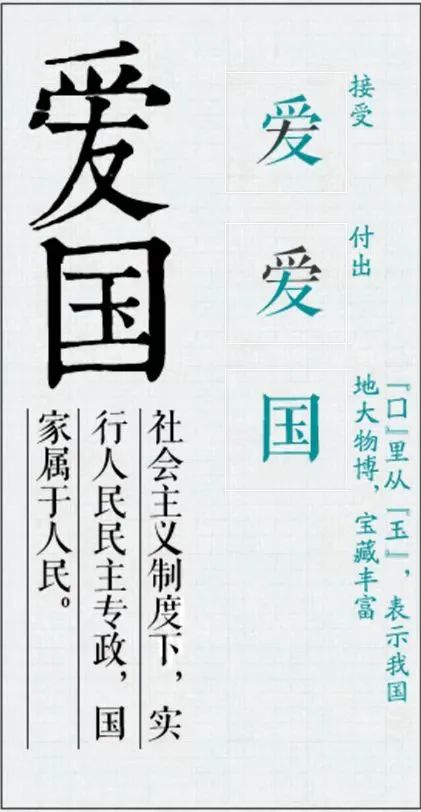 爱国
社会主义制度下，实
行人民民主专政，国
家属于人民。
爱
接受
爱
付出
国
『口』里从『玉』，表示我国
地大物博，宝藏丰富